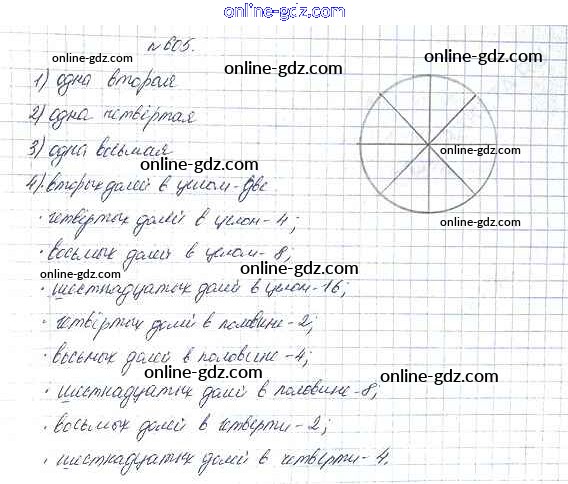 online-gdz.com
№605.
online-gdz.com
online-gdz.com
1) одна вторая
online-gdz.com
2) одна четвёртая
online-gdz.com
3) одна восьмая
online-gdz.com
4) вторых долей в целом - две.
online-gdz.com
· четвёртых долей в целом - 4;
online-gdz.com
· восьмых долей в целом - 8;
online-gdz.com
online-gdz.com
· шестнадцатых долей в целом - 16;
online-gdz.com
· четвёртых долей в половине - 2;
· восьмых долей в половине - 4;
online-gdz.com
online-gdz.com
· шестнадцатых долей в половине - 8;
· восьмых долей в четверти - 2;
online-gdz.com
· шестнадцатых долей в четверти - 4.